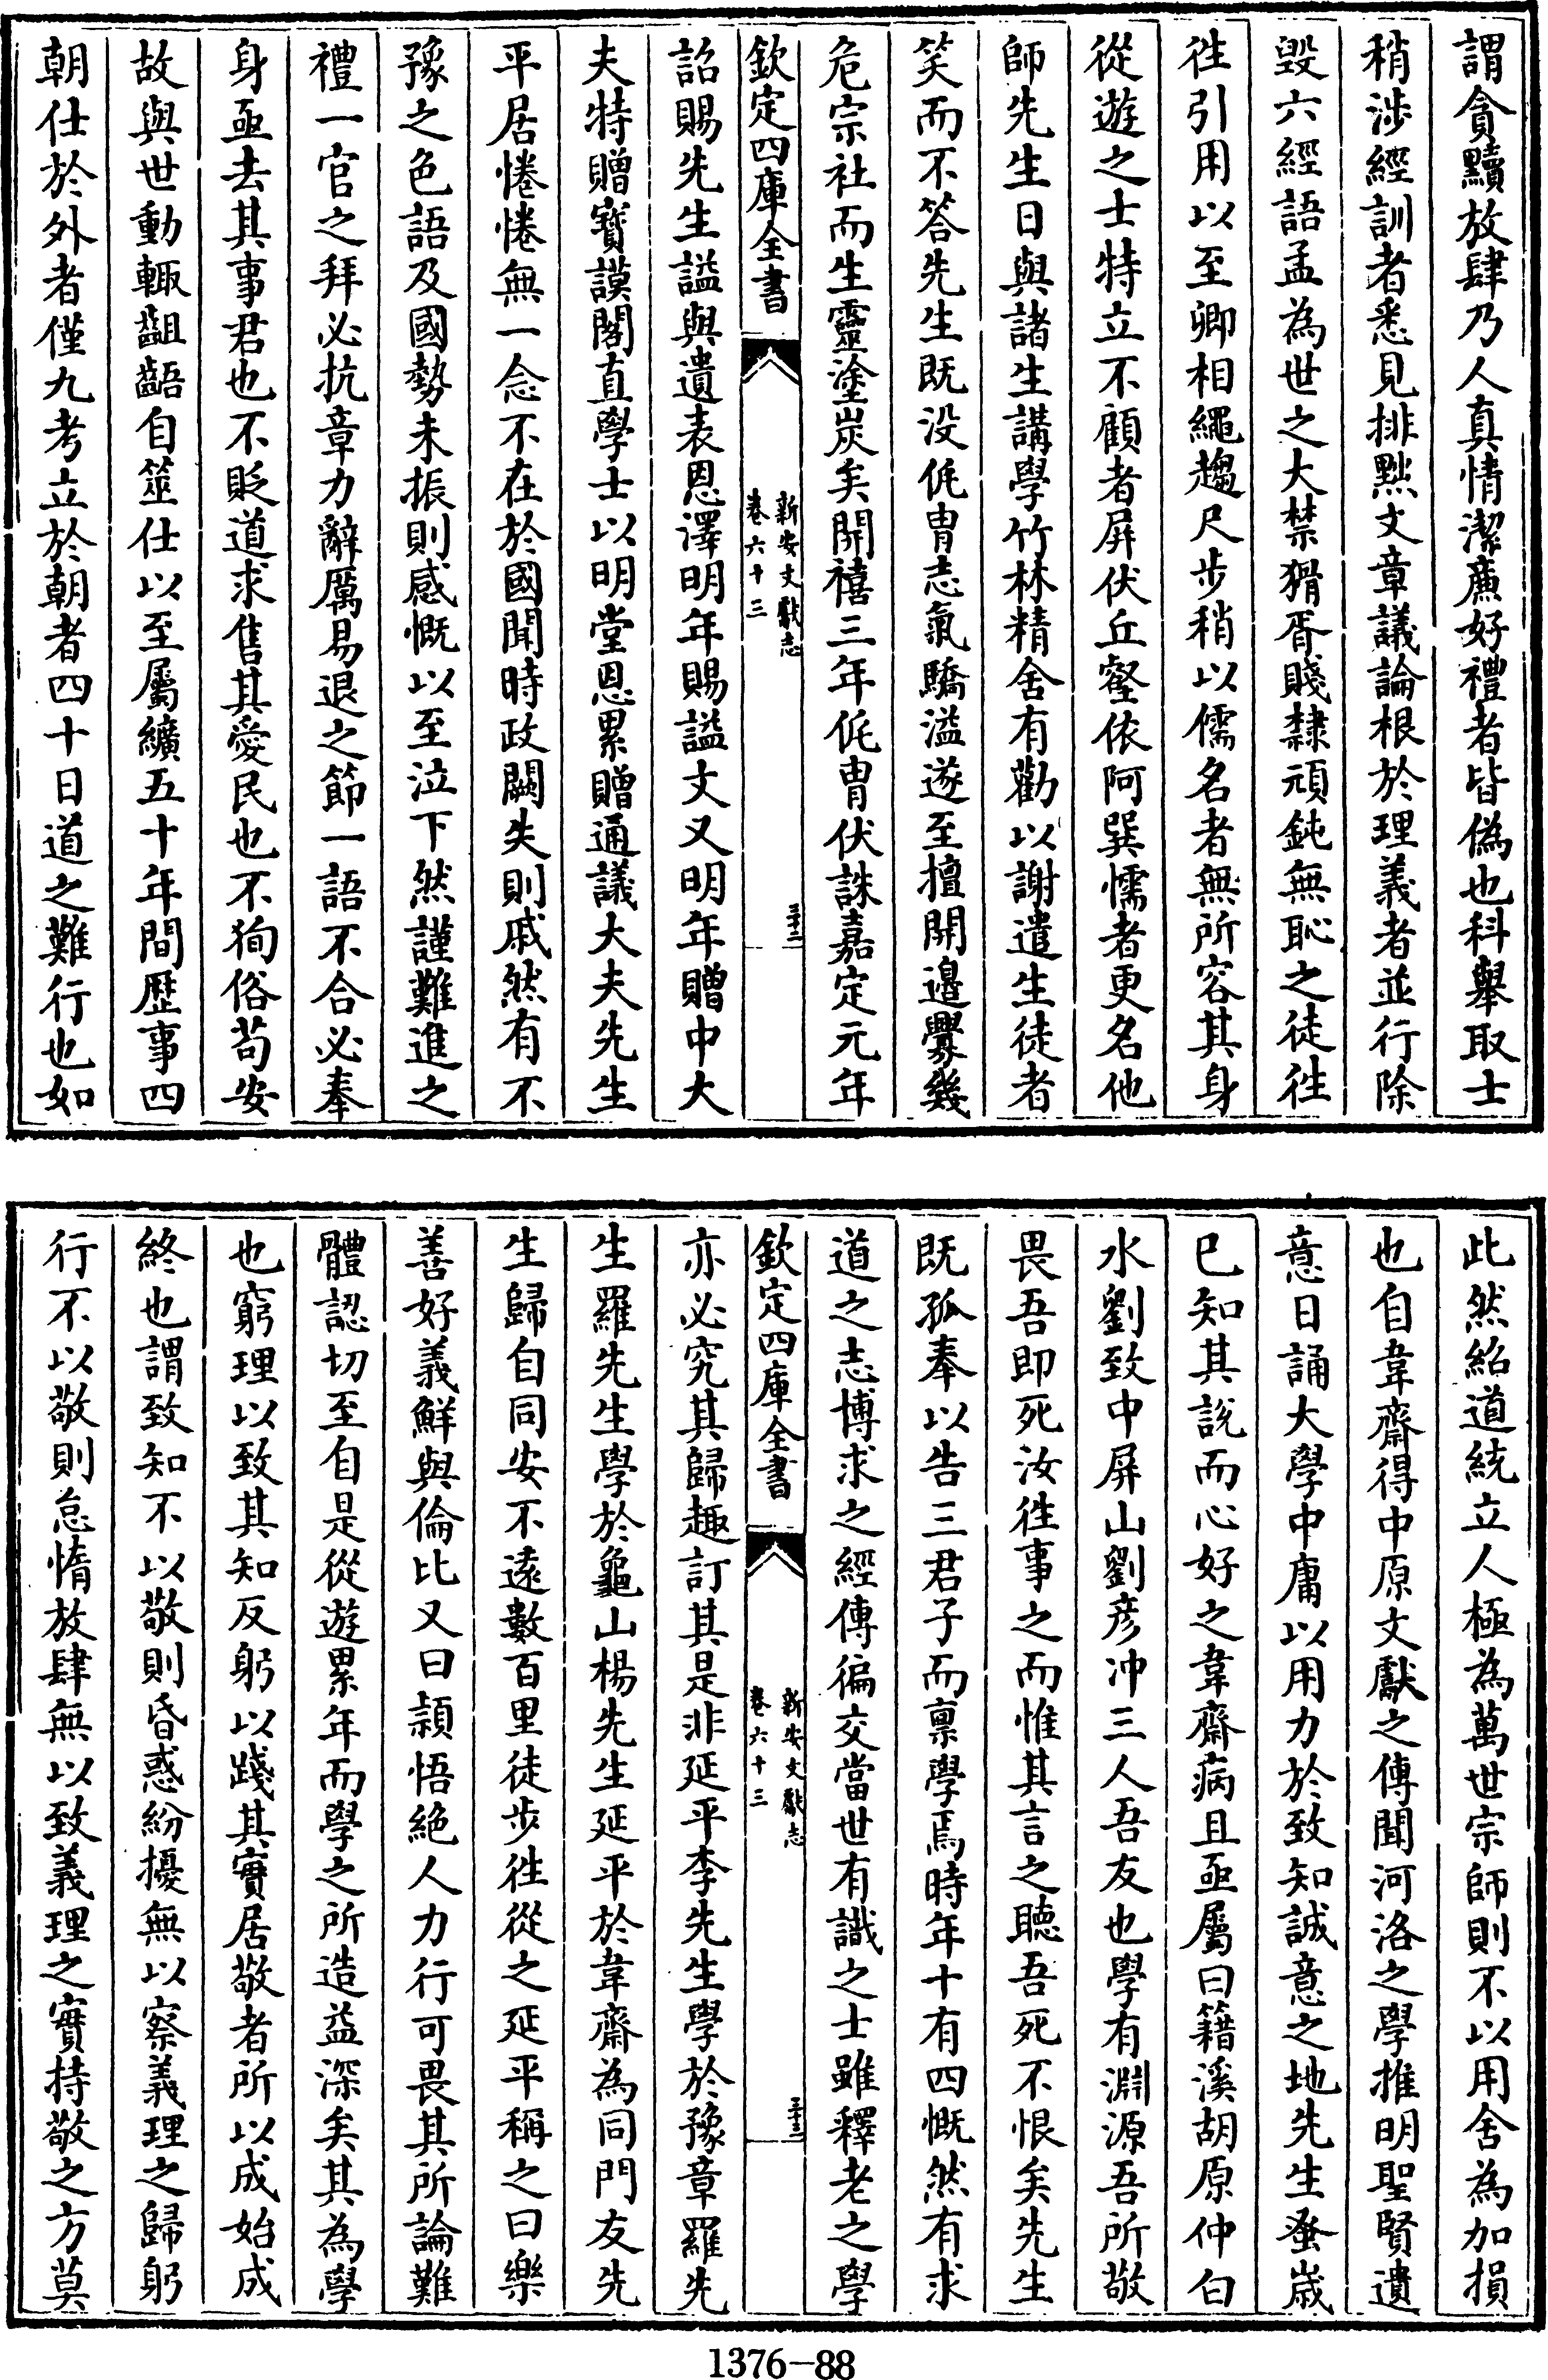 謂貪黷放肆乃人真情潔㢘好禮者皆偽也科舉取士
稍涉經訓者悉見排黜文章議論根於理義者並行除
毀六經語孟為世之大禁猾胥賤隸頑鈍無恥之徒徃
徃引用以至卿相繩趨尺步稍以儒名者無所容其身
從遊之士特立不顧者屏伏丘壑依阿巽懦者更名他
師先生日與諸生講學竹林精舍有勸以謝遣生徒者
笑而不答先生既没侂胄志氣驕溢遂至擅開邉釁幾
危宗社而生靈塗炭矣開禧三年侂胄伏誅嘉定元年
欽定四庫全書
新安文獻志
卷六十三
三十二
詔賜先生謚與遺表恩澤明年賜謚文又明年贈中大
夫特贈寶謨閣直學士以明堂恩累贈通議大夫先生
平居惓惓無一念不在於國聞時政闕失則戚然有不
豫之色語及國勢未振則感慨以至泣下然謹難進之
禮一官之拜必抗章力辭厲易退之節一語不合必奉
身亟去其事君也不貶道求售其愛民也不狥俗苟安
故與世動輒齟齬自筮仕以至屬纊五十年間歷事四
朝仕於外者僅九考立於朝者四十日道之難行也如
此然紹道統立人極為萬世宗師則不以用舍為加損
也自韋齋得中原文獻之傳聞河洛之學推明聖賢遺
意日誦大學中庸以用力於致知誠意之地先生蚤歲
已知其說而心好之韋齋病且亟屬曰籍溪胡原仲白
水劉致中屏山劉彦冲三人吾友也學有淵源吾所敬
畏吾即死汝徃事之而惟其言之聽吾死不恨矣先生
既孤奉以告三君子而禀學焉時年十有四慨然有求
道之志博求之經傳徧交當世有識之士雖釋老之學
欽定四庫全書
新安文獻志
卷六十三
三十三
亦必究其歸趣訂其是非延平李先生學於豫章羅先
生羅先生學於龜山楊先生延平於韋齋為同門友先
生歸自同安不逺數百里徒步徃從之延平稱之曰樂
善好義鮮與倫比又曰頴悟絶人力行可畏其所論難
體認切至自是從遊累年而學之所造益深矣其為學
也窮理以致其知反躬以踐其實居敬者所以成始成
終也謂致知不以敬則昏惑紛擾無以察義理之歸躬
行不以敬則怠惰放肆無以致義理之實持敬之方莫
1376-88